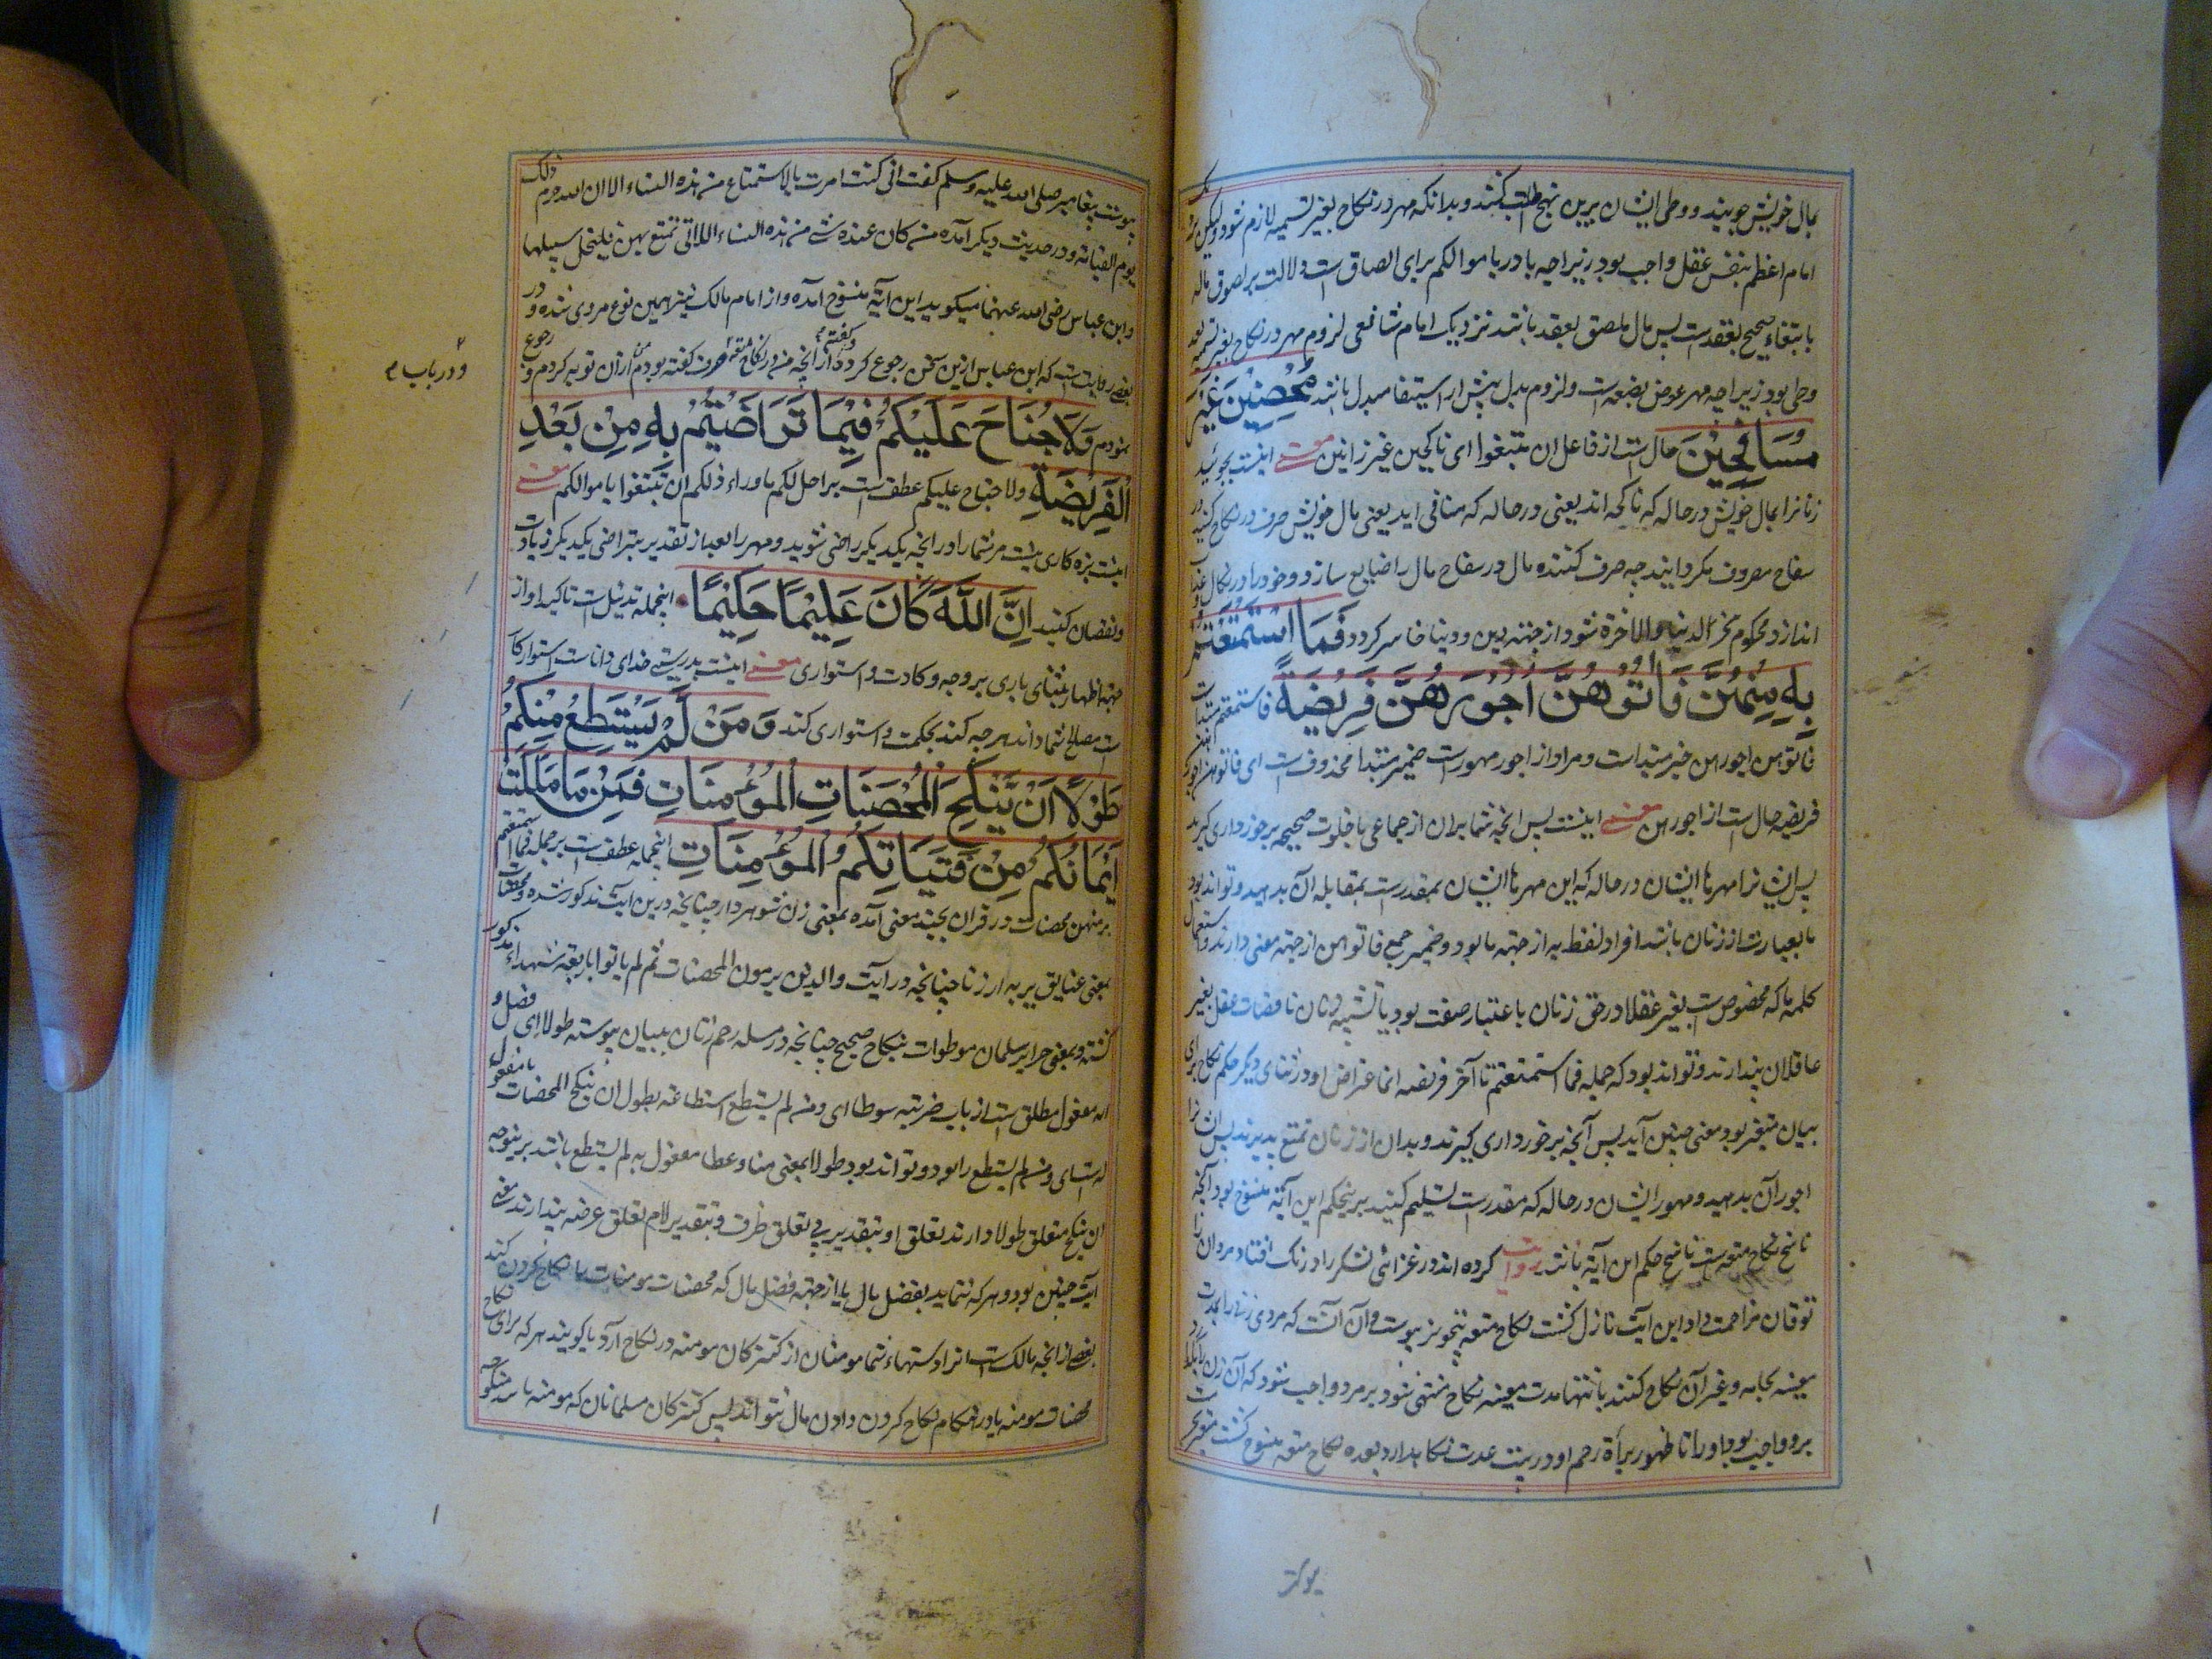 بمال خویش جویند و وطی ایشان برین نهج طلب کنند و بدانکه مهر در نکاح بغیر تسمیه لازم شود ولیکن نزد
امام اعظم بنفس عقل واجب بود زیراچه با در باموالکم برای الصاق است دلالت بر لصوق مال
بابتغاء صحیح بعقد است پس مال ملصق بعقد باشد نزدیک امام شافعی لزوم مهر در نکاح بغیر تسمیه بعد
وطی بود زیراچه مهر عوض بضعه است ولزوم بدل پیش از استیفا مبدل باشد مُحْصِنِیْنَ غَیْرَ
مُسَافِحِیْنَ حال است از فاعل ان تبتغوا ای ناکحین غیر زانین معنی اینست بجوئید
زنانرا بمال خویش در حاله که ناکحه اند یعنی در حاله که منافی اید یعنی مال خویش صرف در نکاح کنید در
سفاح مصروف مکردانید چه صرف کننده مال در سفاح مال را ضایع سازد و خود را در نکال عذاب
اندازد و محکوم بخز الدنیا والاخرة شود از جهته دین و دنیا خاسر کردد فَمَا اسْتَمْتَعْتُمْ
بِهٖ مِنْهُنَّ فَاٰتُوْهُنَّ اُجُوْرَهُنَّ فَرِیْضَةً فما استمتعتم مبتداست
فاتوهن اجورهن خبر مبتداست و مراد از اجور مهورست ضمیر مبتدا محذوف است ای فاتوهن اجورهن
فریضه حال است از اجورهن معنی اینست پس انچه شما بدان از جماعی یا خلوت صحیحه برخورداری کیرید
پس ایشانرا مهرهاء ایشان در حاله که این مهرهاء ایشان بمقدرست بمقابله آن بدهید و تواند بود
ما بعبارت از زنان باشد افراد لفظ به از جهته ما بود و ضمیر جمع فاتوهن از جهته معنی دارند و استعمال
کلمه ما که مخصوص است بغیر عقلا در حق زنان باعتبار صفت بود یا تشبیه زنان ناقصات عقل بغیر
عاقلان پندارند و تواند بود که جمله فما استمتعتم تا آخر فریضه انما عتراض او در زنتای دیکر حکم نکاح برای
بیان متغیر بود معنی چنین آید پس آنچه برخورداری کیرند و بدان از زنان تمتع پدیرند پس ایشانرا
اجور آن بدهید و مهور ایشان در حاله که مقدر است تسلیم کنید برینحکم این آیة منسوخ بود آنچه
ناسخ نکاح متعه است ناسخ حکم این آیة باشد روایت کرده اند در غزائی لشکر را درنک افتاد مردان را
توقان مزاحمت داد این آیت نازل کشت نکاح متعه تجویز پیوست و آن آنست که مردی زنی را بمدت
معینه بجامه و غیر آن نکاح کنند بانتها مدت معینه نکاح منتهی شود و بر مرد واجب شود که آن زن را بکذارد
برو واجب بود اورا تا ظهور برأة رحم او در بیت عدت نکاه بدارد بعده نکاح متعه منسوخ کشت
پیوست
پیوست پیغامبر صلی الله علیه وسلم کفت انی کنت امرت بالاستمتاع من هذه النساء الا ان الله حرم ذلک
یوم القیامة و در حدیث دیکر آمده من کان عنده شئ من هذه النساء اللاتی تمتع بهن فلیخل سبیلها
و ابن عباس رضی الله عنهما میکوید این آیة منسوخ آمده و از امام مالک نیز همین نوع مروی شده و در
بعضی روایت است که ابن عباس ازین سخن رجوع کرد و کفت از انچه من در نکاح متعه و صرف کفته بودم من ازان توبه کردم و رجوع
و در باب م
نمودم وَلَا جُنَاحَ عَلَیْکُمْ فِیْمَا تَرَاضَیْتُمْ بِهٖ مِنْ بَعْدِ
الْفَرِیْضَةِ ولا جناح علیکم عطف است براحل لکم ماوراء ذلکم ان تبتغوا باموالکم معنی
اینست بزه کاری نیست مر شمارا در انچه یکدیکر راضی شوید و مهر را بعد از تقدیر بتراضی یکدیکر زیادت
و نقصان کنید اِنَّ اللّٰهَ کَانَ عَلِیْمًا حَکِیْمًا اینجمله تذئیل است تاکید او از
جهته اظهار ثنای باری بر وجه وکادت و استواری معنی اینست بدرستی خدای داناست استوار کار
ست مصالح شما داند هرچه کند بحکمت و استواری کند وَمَنْ لَمْ یَسْتَطِعْ مِنْکُمْ
طَوْلًا اَنْ یَّنْکِحَ الْمُحْصَنَاتِ الْمُؤْمِنَاتِ فَمِنْ مَا مَلَکَتْ
اَیْمَانُکُمْ مِنْ فَتَیَاتِکُمُ الْمُؤْمِنَاتِ اینجمله عطف است بر جمله فما استمتعتم
به منهن محصنات در قران بچند معنی آمده بمعنی زن شوهردار چنانچه درین آیت مذکور شده و محصنات
بمعنی عفایق پرهیز از زنا چنانچه در آیت والذین یرمون المحصنات ثم لم یاتوا باربعة شهداء مذکور
کشته و بمعنی حرایر مسلمان موطوات بنکاح صحیح چنانچه در مسله رجم زنان ببیان پیوسته طولا ای فضل و
له مفعول مطلق است از باب ضربته سوطا ای ومن لم یستطع استطاعة بطول ان ینکح المحصنات یا مفعول
له است ای ومن لم یستطع را بود و تواند بود طولا بمعنی منا و عطا مفعول به لم یستطع باشد برینوجه
ان ینکح متعلق طولا دارند تعلق او بتقدیر فی تعلق ظرف و بتقدیر لام تعلق غرضه پندارند معنی
آیت چنین بود و هرکه نتماید بفضل مال یا از جهته فضل مال که محصنات مومنات را نکاح کردن کند
بعضی از انچه مالک است انرا دستهاء شما مومنان از کنیزکان مومنه در نکاح آرد یا کویند هرکه برای نکاح
محصنات مومنه یا در هنکام نکاح کردن دادن مال نتواند پس کنیزکان مسلمانان که مومنه باشد منکوحه